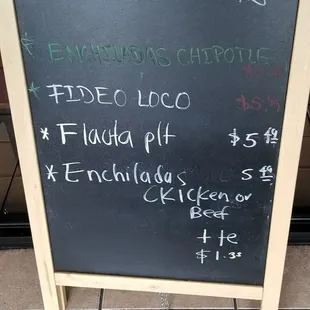 * ENCHILADAS CHIPOTLE
* FIDEO LOCO $5.
* Flauta plt $5 49
* Enchiladas 5 49
CKICKen or
Beef
+ te
$1.